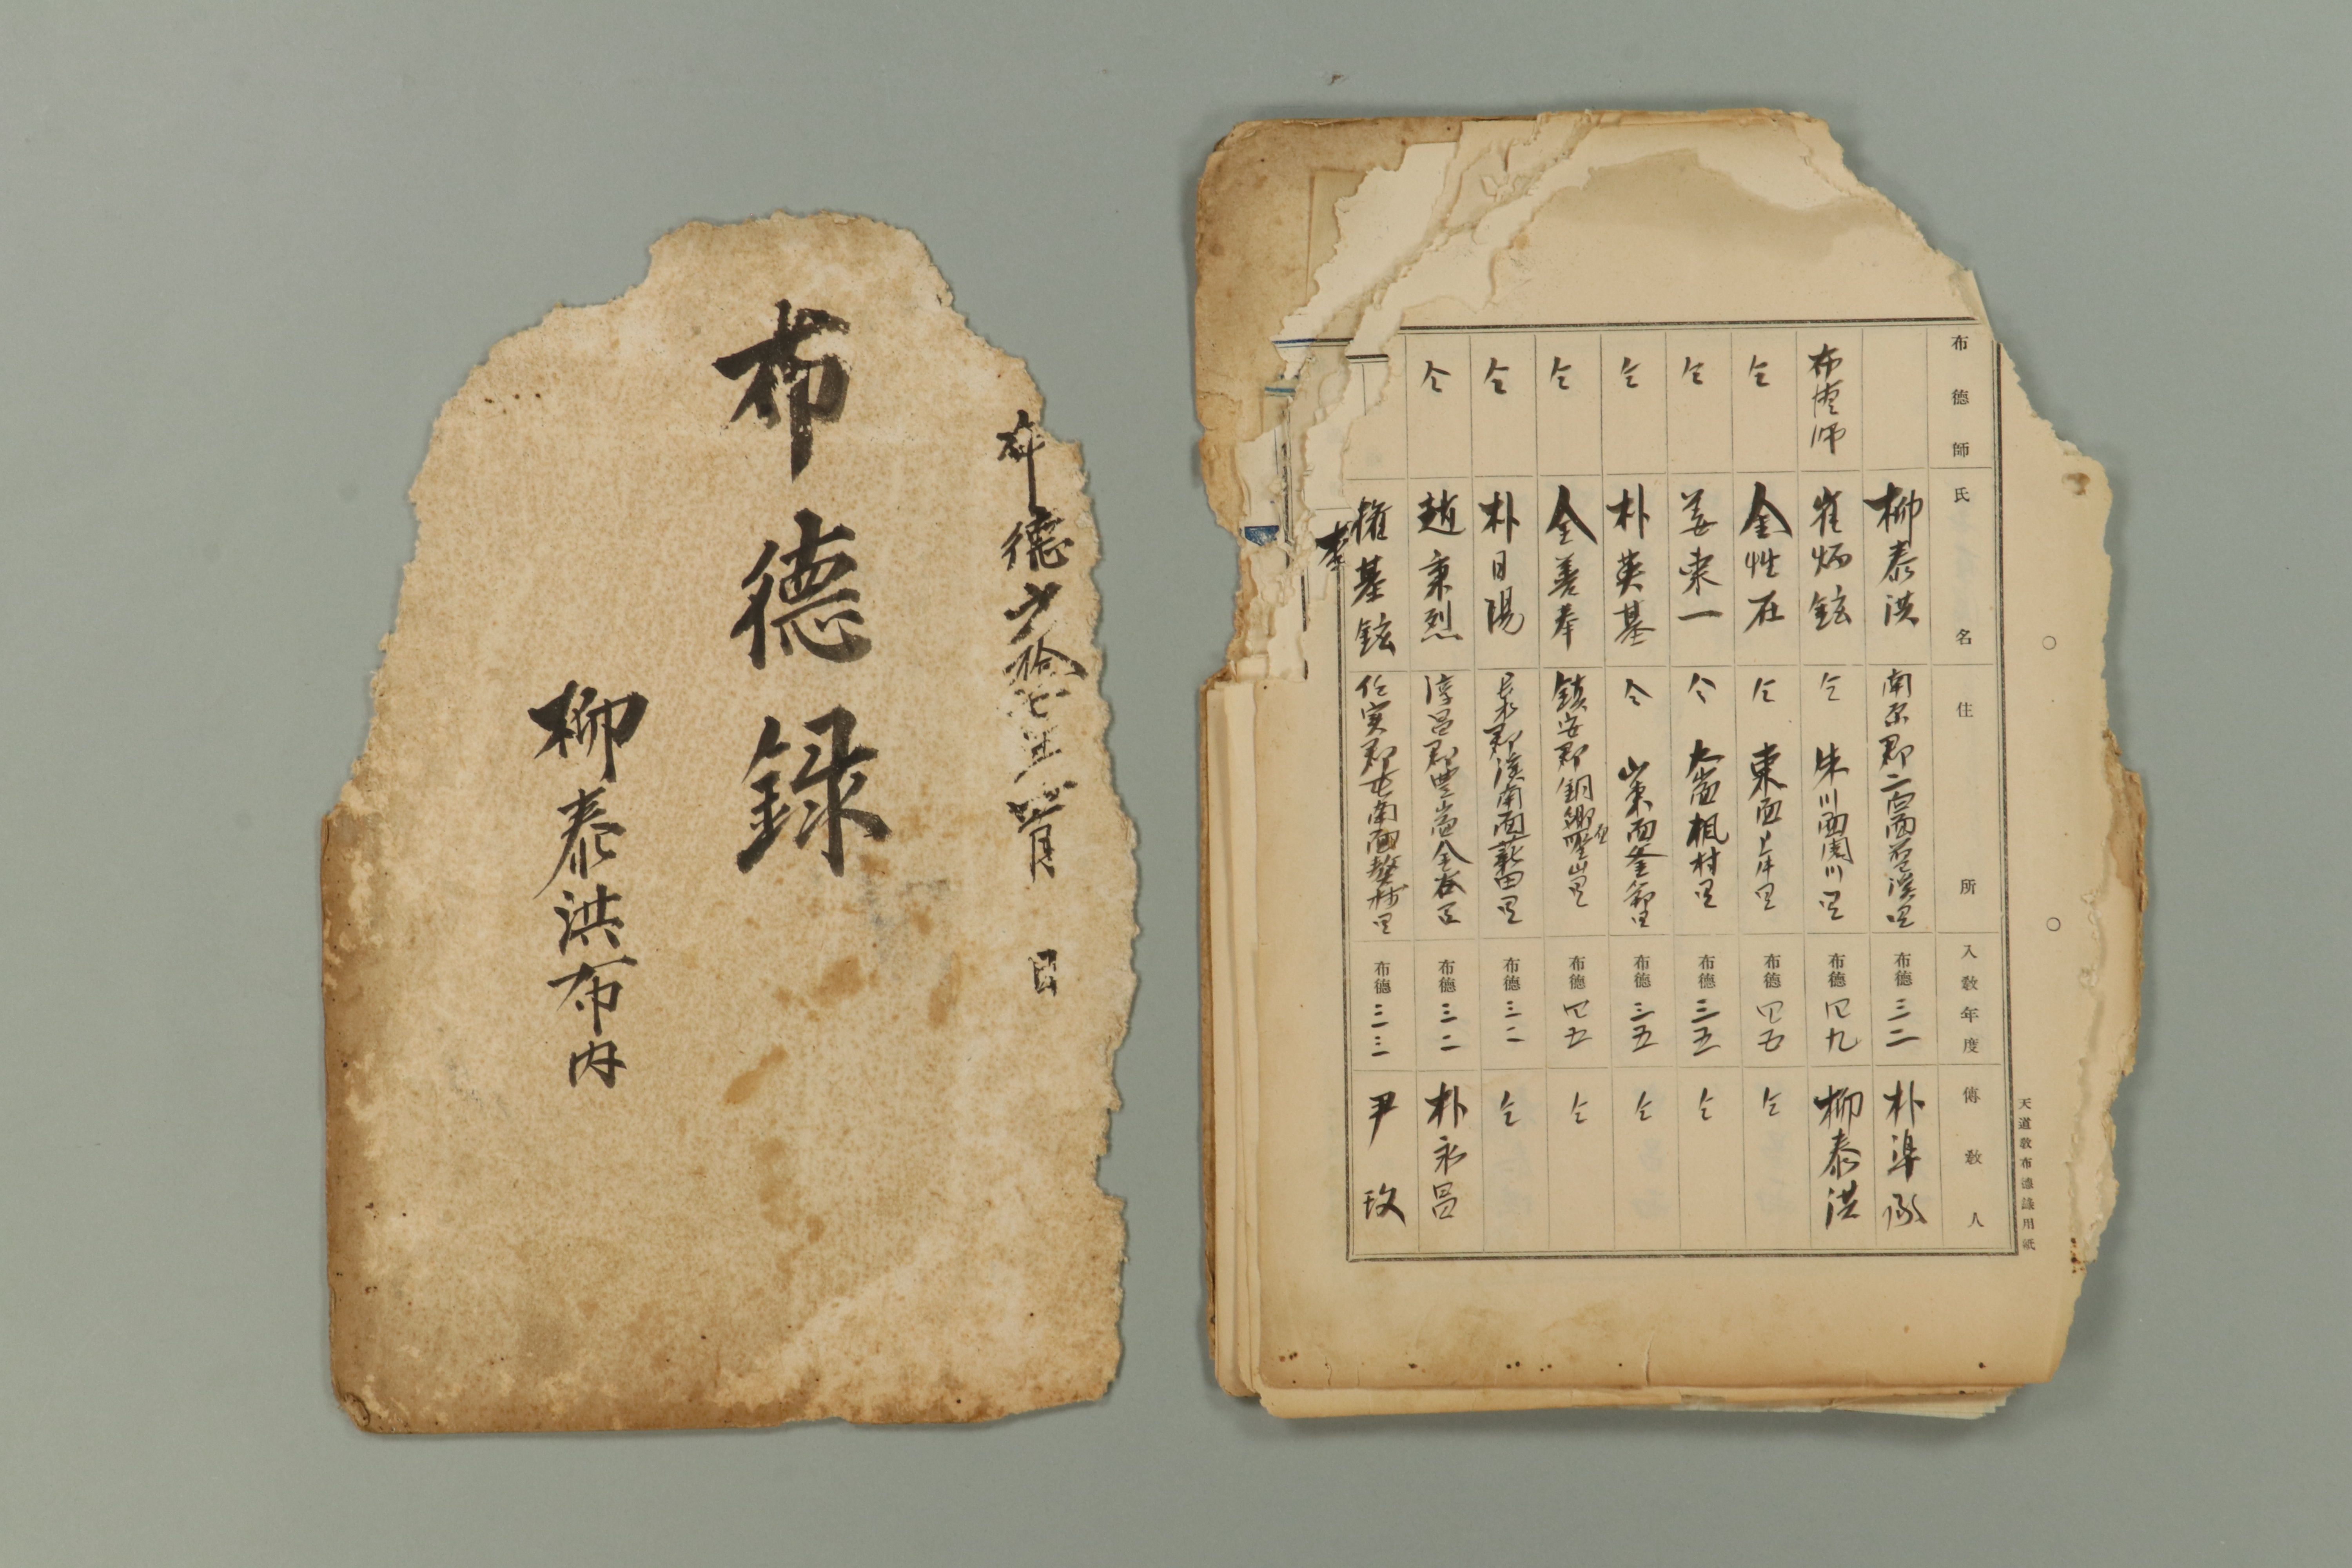 布德錄
柳泰洪布內
布德師 氏名 住所 入敎年度 傳敎人
柳泰洪 南原郡二白面 里 布德三二 朴準承
布德師 崔炳鉉 仝 朱川面 川里 布德四九 柳泰洪
仝 金性在 仝 東面 里 布德四五 仝
仝 姜東一 仝 大山面楓村里 布德三五 仝
仝 朴英基 仝 山東面釜節里 布德三五 仝
仝 金善奉 鎭安郡銅鄕面聖山里 布德四五 仝
仝 朴日陽 長水郡溪南面 田里 布德三二 仝
仝 趙秉烈 淳昌郡豊山面金谷里 布德三二 朴永昌
權基鉉 任實郡屯南面獒樹里 布德三三 尹玫
李
天道敎布德錄用紙